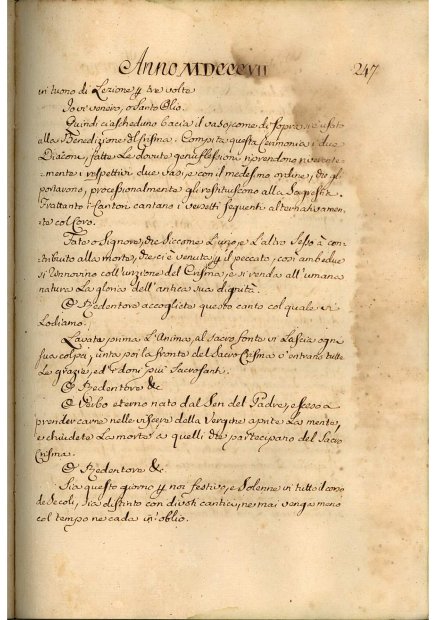 Anno MDCCCVII 247
in tuono di Lezione p tre volte
Io vi venero, o Santo Olio.
Quindi ciascheduno bacia il vaso, come di sopra si è usato
alla Benedizione del Crisma. Compita questa Cerimonia i due
Diaconi, fatte le dovute genuflessioni riprendono riverente-
mente i rispettivi due vasi, e con il medesimo ordine, che gli
portarono, processionalmente gli restituscono alla Sagrestia.
Frattanto i Cantori cantano i versetti seguenti alternativamen-
te col Coro.
Fate o Signore, che siccome l'uno, e l'altro Sesso à con-
tribuito alla morte, che ci è venuta p il peccato, così ambedue
si rinnovino coll'unzione del Crisma, e si renda all'umana
natura la gloria dell'antica sua dignità.
O Redentore accogliete questo canto col quale vi
Lodiamo.
Lavata prima l'Anima, al sacro fonte vi lascia ogni
sua colpa, unta poi la fronte del Sacro Crisma v'entrano tutte
le grazie, ed i doni più Sacrosanti.
O Redentore &c.
O Verbo eterno nato dal Sen del Padre, e sceso a
prender carne nelle viscere della Vergine aprite la mente,
e chiudete la morte a quelli che partecipano del Sacro
Crisma.
O Redentore &c.
Sia questo giorno p noi festivo, e solenne in tutto il corso
de Secoli, sia distinto con divoti cantici, ne mai venga meno
col tempo ne cada in oblio.